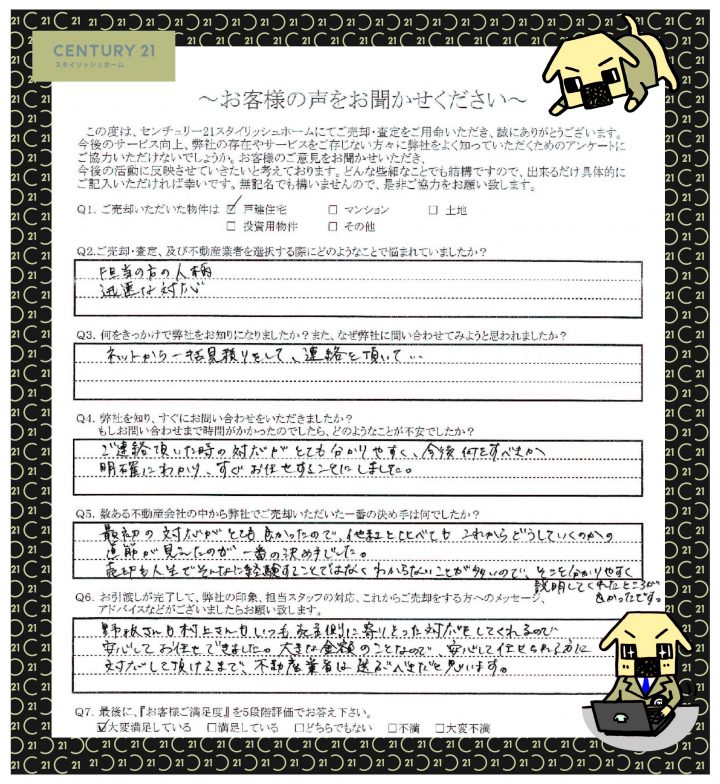 CENTURY 21
スタイリッシュホーム
～お客様の声をお聞かせください～
この度は、センチュリー21スタイリッシュホームにてご売却・査定をご用命いただき、誠にありがとうございます。
今後のサービス向上、弊社の存在やサービスをご存じない方々に弊社をよく知っていただくためのアンケートに
ご協力いただけないでしょうか。お客様のご意見をお聞かせいただき、
今後の活動に反映させていきたいと考えております。どんな些細なことでも結構ですので、出来るだけ具体的に
ご記入いただければ幸いです。無記名でも構いませんので、是非ご協力をお願い致します。
Q1. ご売却いただいた物件は ☑ 戸建住宅 □ マンション □ 土地
□ 投資用物件 □ その他
Q2.ご売却・査定、及び不動産業者を選択する際にどのようなことで悩まれていましたか？
担当の方の人柄
迅速な対応
Q3. 何をきっかけで弊社をお知りになりましたか？また、なぜ弊社に問い合わせてみようと思われましたか？
ネットから一括見積りをして、連絡を頂いて…
Q4. 弊社を知り、すぐにお問い合わせをいただきましたか？
もしお問い合わせまで時間がかかったのでしたら、どのようなことが不安でしたか？
ご連絡頂いた時の対応がとても分かりやすく、今後何をすべきか
明確にわかり、すぐお任せすることにしました。
Q5. 数ある不動産会社の中から弊社でご売却いただいた一番の決め手は何でしたか？
最初の対応がとても良かったので、他社とくらべてもこれからどうしていくのかの
道筋が見えたのが一番の決め手でした。
売却も人生でそんなに経験することではなくわからないことが多いので、そこを分かりやすく
説明してくれたところが
良かったです。
Q6. お引渡しが完了して、弊社の印象、担当スタッフの対応、これからご売却をする方へのメッセージ、
アドバイスなどがございましたらお願い致します。
野坂さんも村上さんもいつも売主側に寄りそった対応をしてくれるので
安心してお任せできました。大きな金額のことなので、安心して任せられる方に
対応して頂けるまで、不動産業者は選ぶべきだと思います。
Q7. 最後に、『お客様ご満足度』を5段階評価でお答え下さい。
☑大変満足している □満足している □どちらでもない □不満 □大変不満